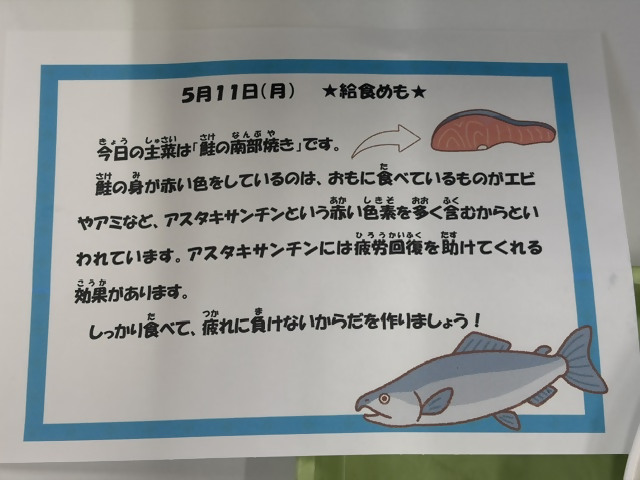 5月11日(月)　★給食めも★
今日の主菜は「鮭の南部焼き」です。
鮭の身が赤い色をしているのは、おもに食べているものがエビ
やアミなど、アスタキサンチンという赤い色素を多く含むからとい
われています。アスタキサンチンには疲労回復を助けてくれる
効果があります。
しっかり食べて、疲れに負けないからだを作りましょう！